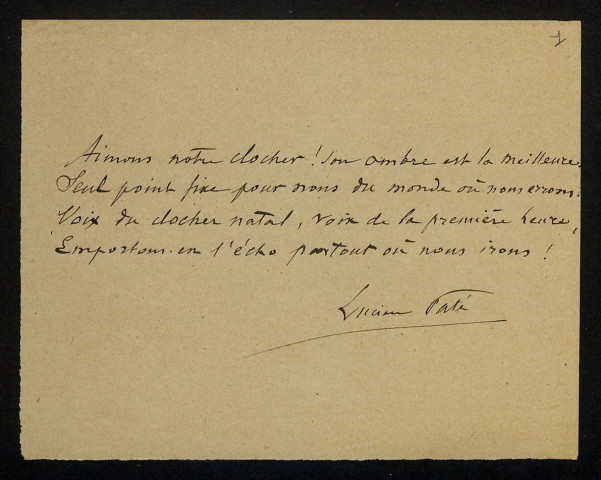 1
Aimons notre clocher ! Son ombre est la meilleure,
Seul point fixe pour nous du monde où nous errons :
Voix du clocher natal, voix de la première heure,
Emportons-en l'écho partout où nous irons !
Lucien Paté